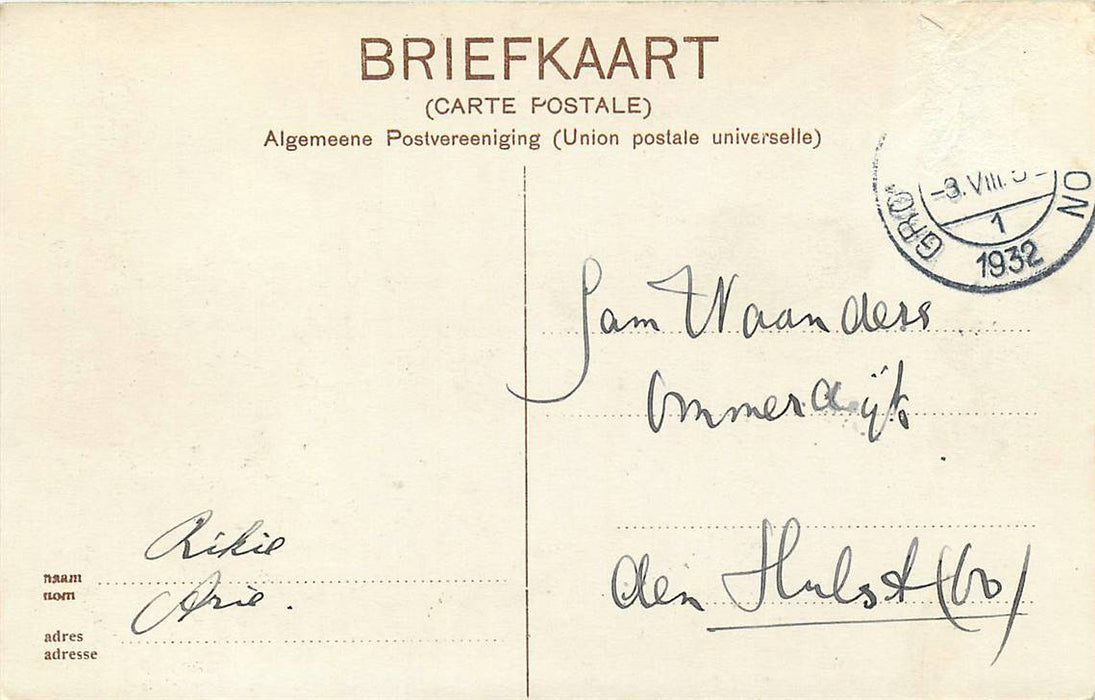 BRIEFKAART
(CARTE POSTALE)
Algemeene Postvereeniging (Union postale universelle)
-3.VIII.3
1
GRO
NO
1932
Sam Waanders
Ommerdijk
den Hulst (Ov)
Rikie
naam
nom
Arie.
adres
adresse